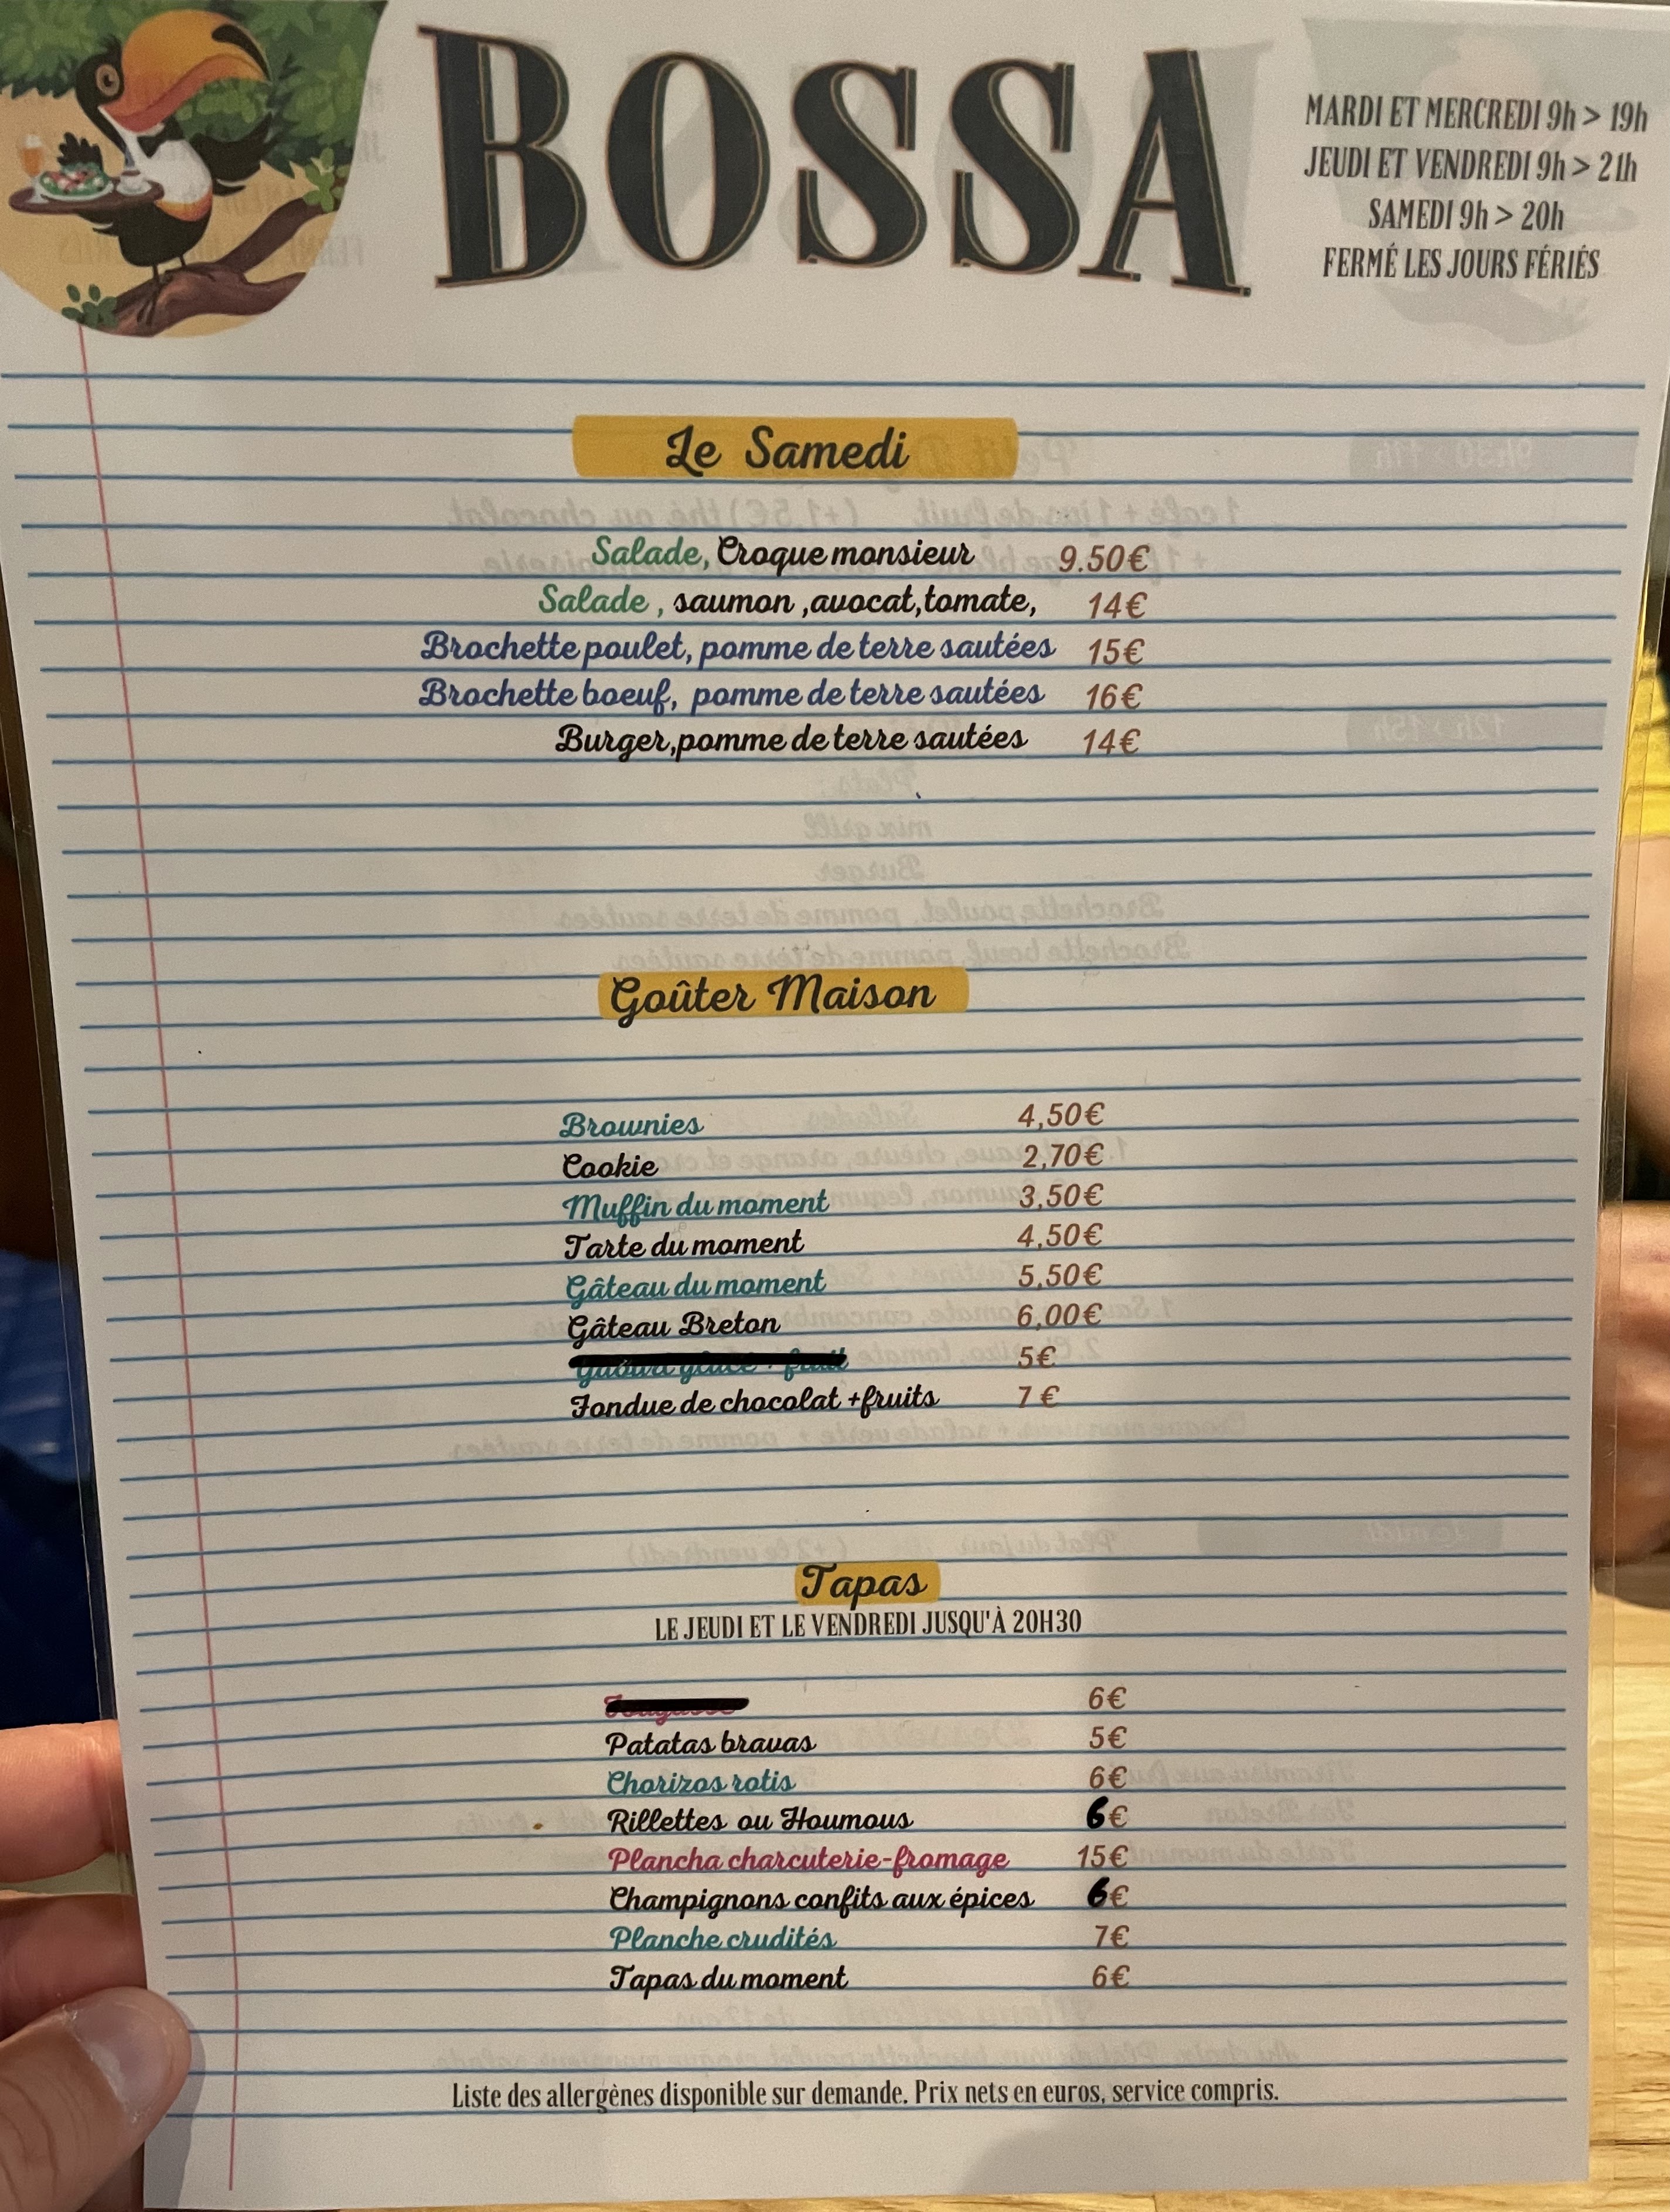 BOSSA
MARDI ET MERCREDI 9h > 19h
JEUDI ET VENDREDI 9h > 21h
SAMEDI 9h > 20h
FERMÉ LES JOURS FÉRIÉS
Le Samedi
Salade, Croque monsieur 9.50€
Salade , saumon ,avocat,tomate, 14€
Brochette poulet, pomme de terre sautées 15€
Brochette boeuf, pomme de terre sautées 16€
Burger,pomme de terre sautées 14€
Goûter Maison
Brownies 4,50€
Cookie 2,70€
Muffin du moment 3,50€
Tarte du moment 4,50€
Gâteau du moment 5,50€
Gâteau Breton 6,00€
5€
Fondue de chocolat +fruits 7 €
Tapas
LE JEUDI ET LE VENDREDI JUSQU'À 20H30
6€
Patatas bravas 5€
Chorizos rotis 6€
Rillettes ou Houmous 6€
Plancha charcuterie-fromage 15€
Champignons confits aux épices 6€
Planche crudités 7€
Tapas du moment 6€
Liste des allergènes disponible sur demande. Prix nets en euros, service compris.